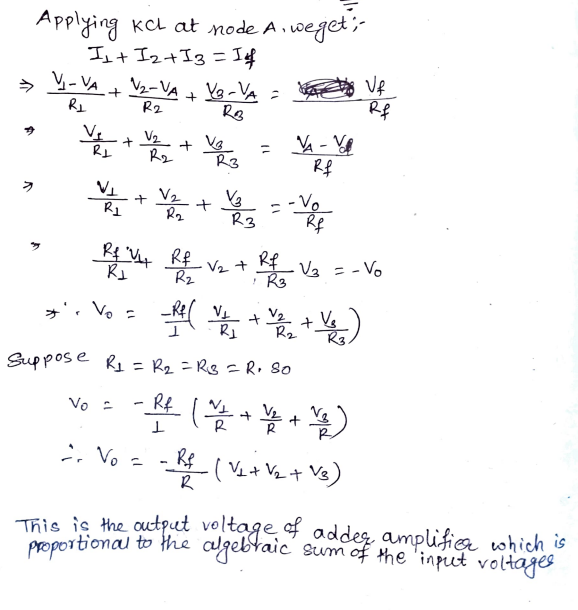 Applying KCL at node A, we get;-
I1 + I2 + I3 = If
⇒ V1-VA/R1 + V2-VA/R2 + V3-VA/R3 = Vf/Rf
⇒ V1/R1 + V2/R2 + V3/R3 = VA - Vof/Rf
⇒ V1/R1 + V2/R2 + V3/R3 = -Vo/Rf
⇒ Rf/R1 V1 + Rf/R2 V2 + Rf/R3 V3 = - Vo
∴ Vo = -Rf/1 ( V1/R1 + V2/R2 + V3/R3 )
Suppose R1 = R2 = R3 = R. so
Vo = - Rf/1 ( V1/R + V2/R + V3/R )
∴ Vo = - Rf/R ( V1 + V2 + V3 )
This is the output voltage of adder amplifier which is
proportional to the algebraic sum of the input voltages